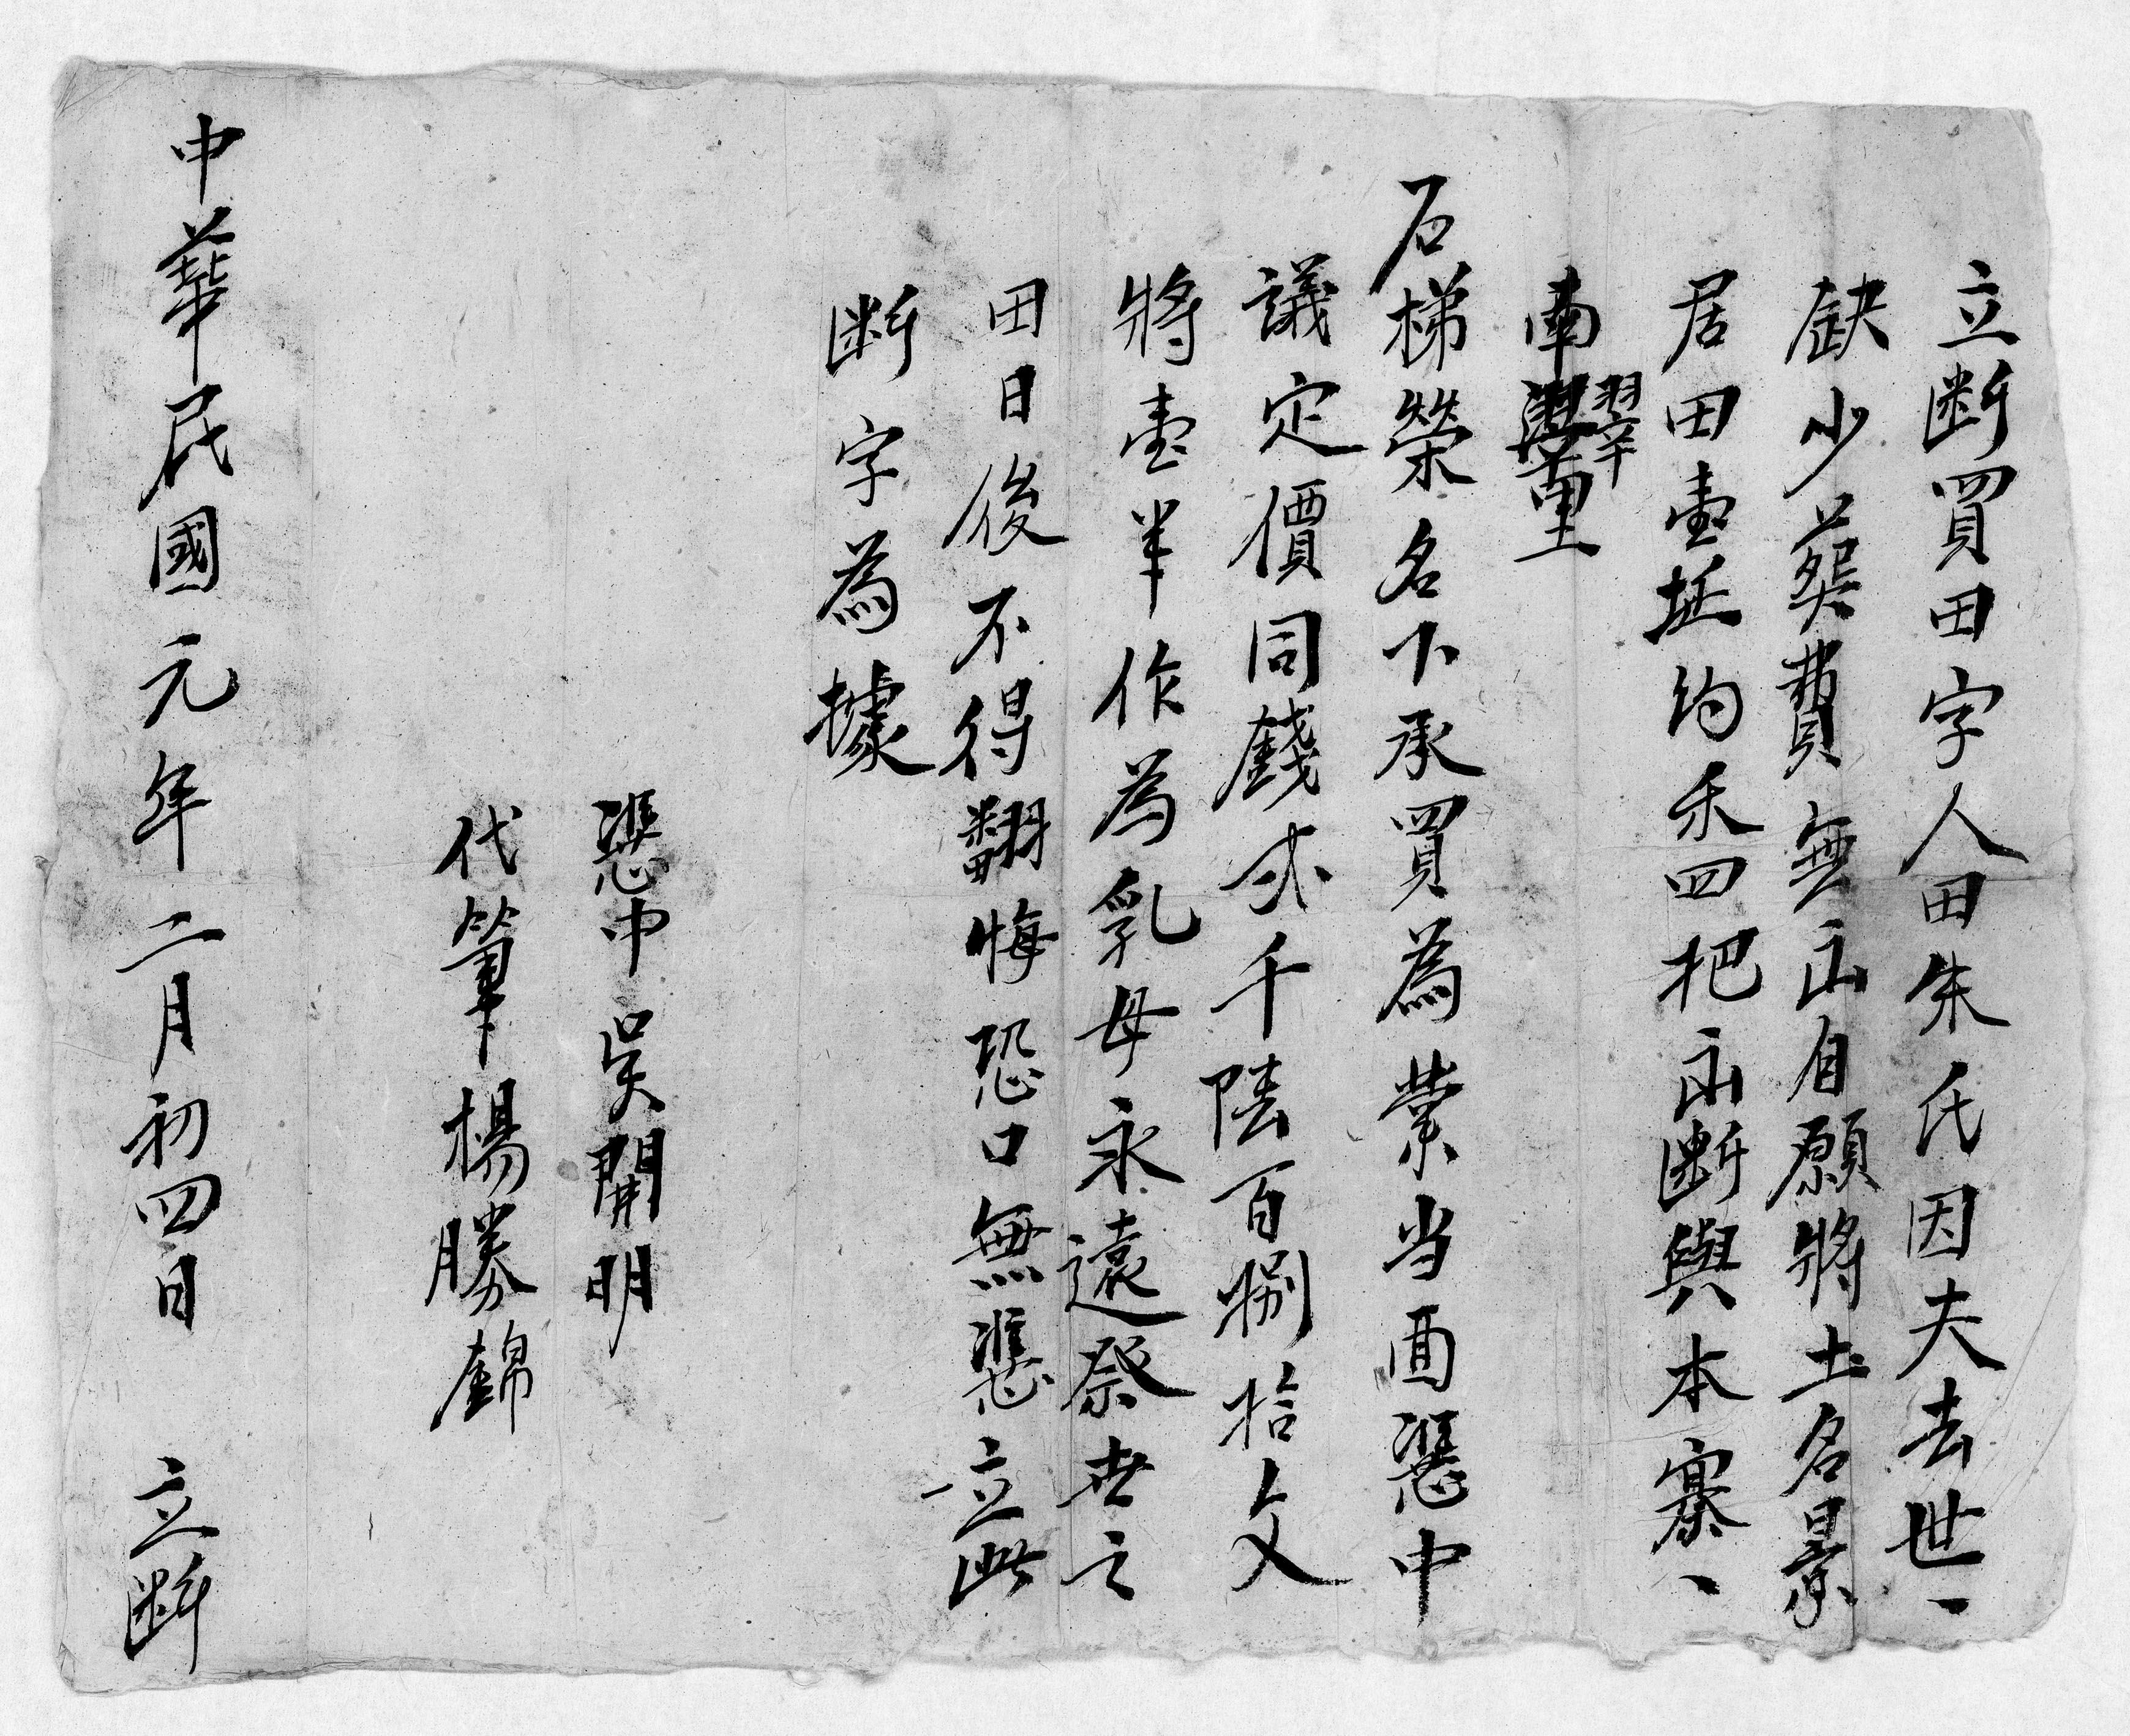 立断買田字人田朱氏因夫去世、
缺少葬費無出自願將土名景
居田壹坵約禾四把出断與本寨、
南
石梯榮名下承買為業当面憑中
議定價同錢弍千陸百捌拾文
將壹半作為乳母永遠祭世之
田日後不得翻悔恐口無憑立此
断字為據
憑中吳開明
代筆楊勝錦
中華民國元年二月初四日 立断